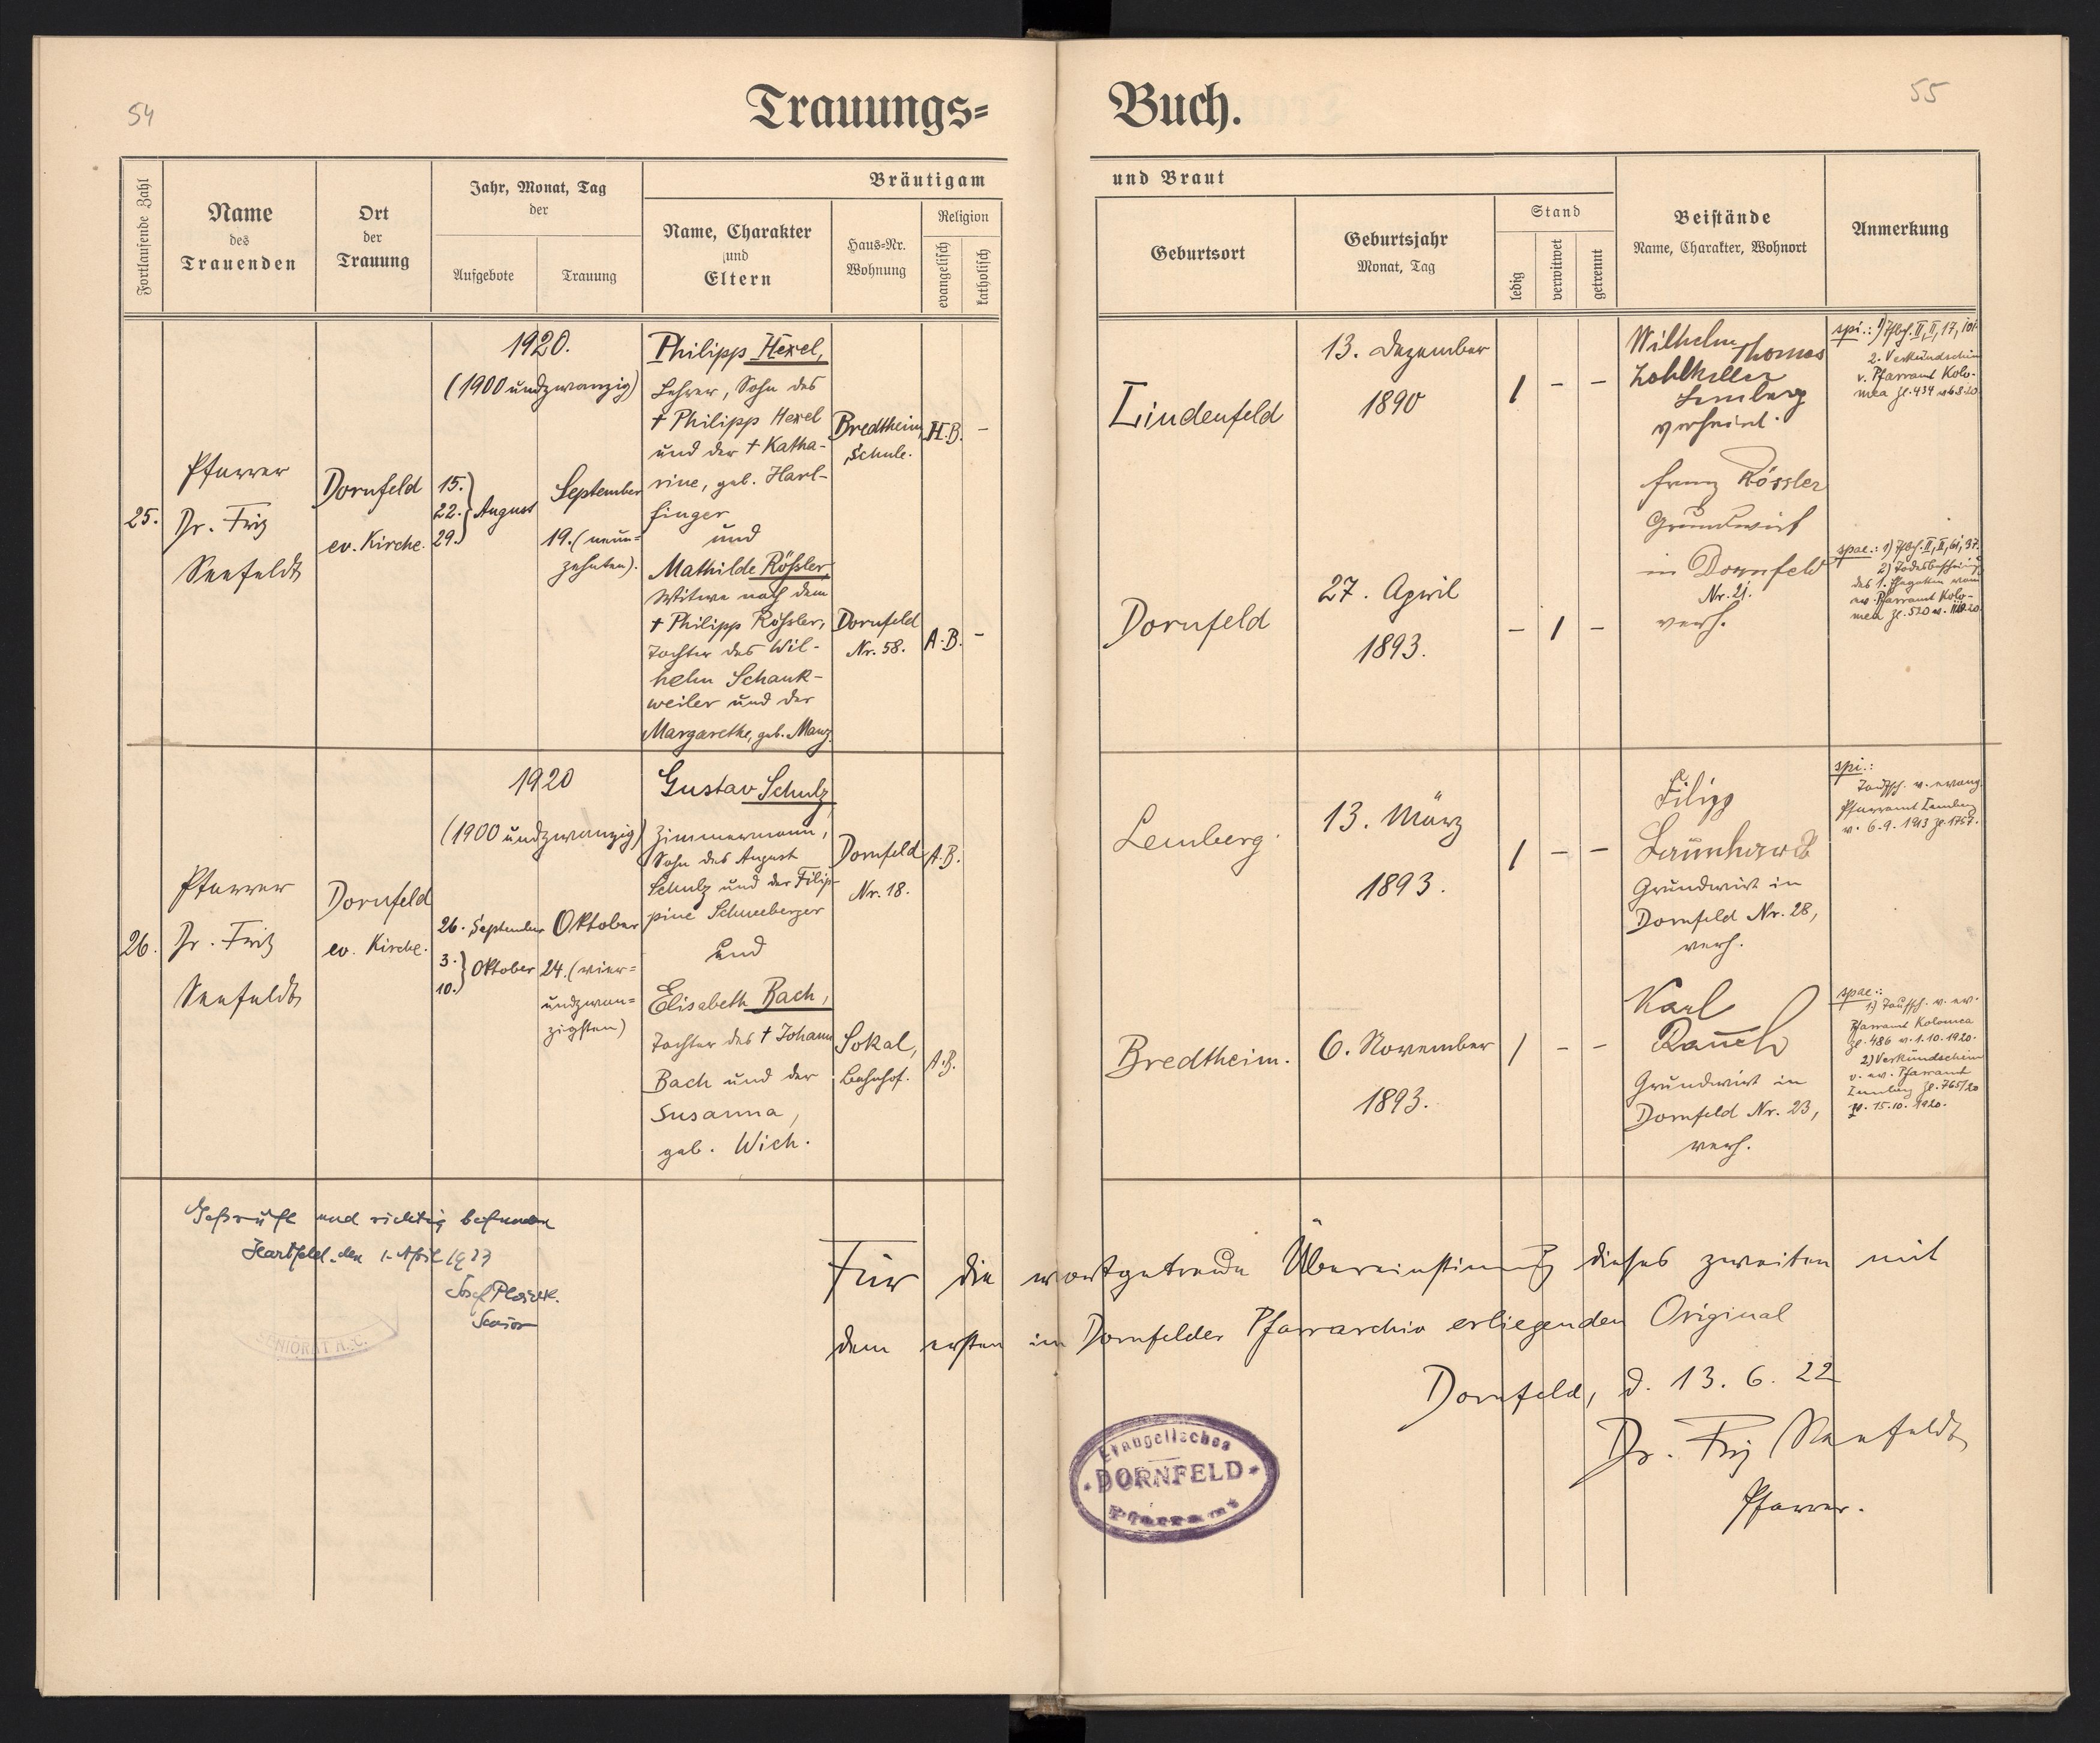 54
Trauungs=
Buch.
55
Fortlaufende Zahl
Name
des
Trauenden
Ort
der
Trauung
Jahr, Monat, Tag
der
Aufgebote
Trauung
Bräutigam
Name, Charakter
und
Eltern
Haus=Nr.
Wohnung
Religion
evangelisch
katholisch
und Braut
Geburtsort
Geburtsjahr
Monat, Tag
Stand
ledig
verwitwet
getrennt
Beistände
Name, Charakter, Wohnort
Anmerkung
25.
Pfarrer
Dr. Fritz
Seefeldt
Dornfeld
ev. Kirche.
1920.
(1900 undzwanzig)
15.
22. } August
29.
September
19. (neun=
zehnten).
Philipp Hexel,
Lehrer, Sohn des
† Philipp Hexel
und der † Katha-
rine, geb. Harl-
finger
und
Mathilde Rößler
Witwe nach dem
† Philipp Rößler,
Tochter des Wil-
helm Schank-
weiler und der
Margarethe, geb. Manz.
Bredtheim,
Schule.
H.B.
-
Dornfeld
Nr. 58.
A.B.
-
Lindenfeld
13. Dezember
1890
1 - -
Dornfeld
27. April
1893.
- 1 -
Wilhelm Thomas
Kohlkeller
Lemberg
verheirat.
Franz Rössler
Grundwirt
in Dornfeld
Nr. 21.
verh.
spi.:
2. Verkündschein
v. Pfarramt Kolo-
mea
spae.:
2) Todesbeschein
ev. Pfarramt Kolo-
mea
26.
Pfarrer
Dr. Fritz
Seefeldt
Dornfeld
ev. Kirche.
1920
(1900 undzwanzig)
26. September
3. } Oktober
10.
Oktober
24. (vier=
undzwan=
zigsten)
Gustav Schulz,
Zimmermann,
Sohn des August
Schulz und der Filip-
pine Schneeberger
und
Elisabeth Bach,
Tochter des † Johann
Bach und der
Susanna,
geb. Wich.
Dornfeld
Nr. 18.
A.B.
Sokal,
Bahnhof.
A.B.
Lemberg.
13. März
1893.
1 - -
Bredtheim.
6. November
1893.
1 - -
Filipp
Launhardt
Grundwirt in
Dornfeld Nr. 28,
verh.
Karl
Rauch
Grundwirt in
Dornfeld Nr. 23,
verh.
spi.:
Taufsch. v. evang.
Pfarramt Lemberg
v. 6.9.1913 Zl. 1757.
spae.:
1) Taufsch. v. ev.
Pfarramt Kolomea
Zl. 486 v. 1.10.1920.
2) Verkündschein
v. ev. Pfarramt
Lemberg Zl. 765/20
v. 15.10.1920.
Geprüft und richtig befunden
Hartfeld, den 1. April 1923
Josef
Senior
SENIORAT A.C.
Für die wortgetreue Übereinstimmung dieses zweiten mit
dem ersten im Dornfelder Pfarrarchiv erliegenden Original
Dornfeld, d. 13. 6. 22
Dr. Fritz Seefeldt
Pfarrer.
Evangelisches
DORNFELD
Pfarramt